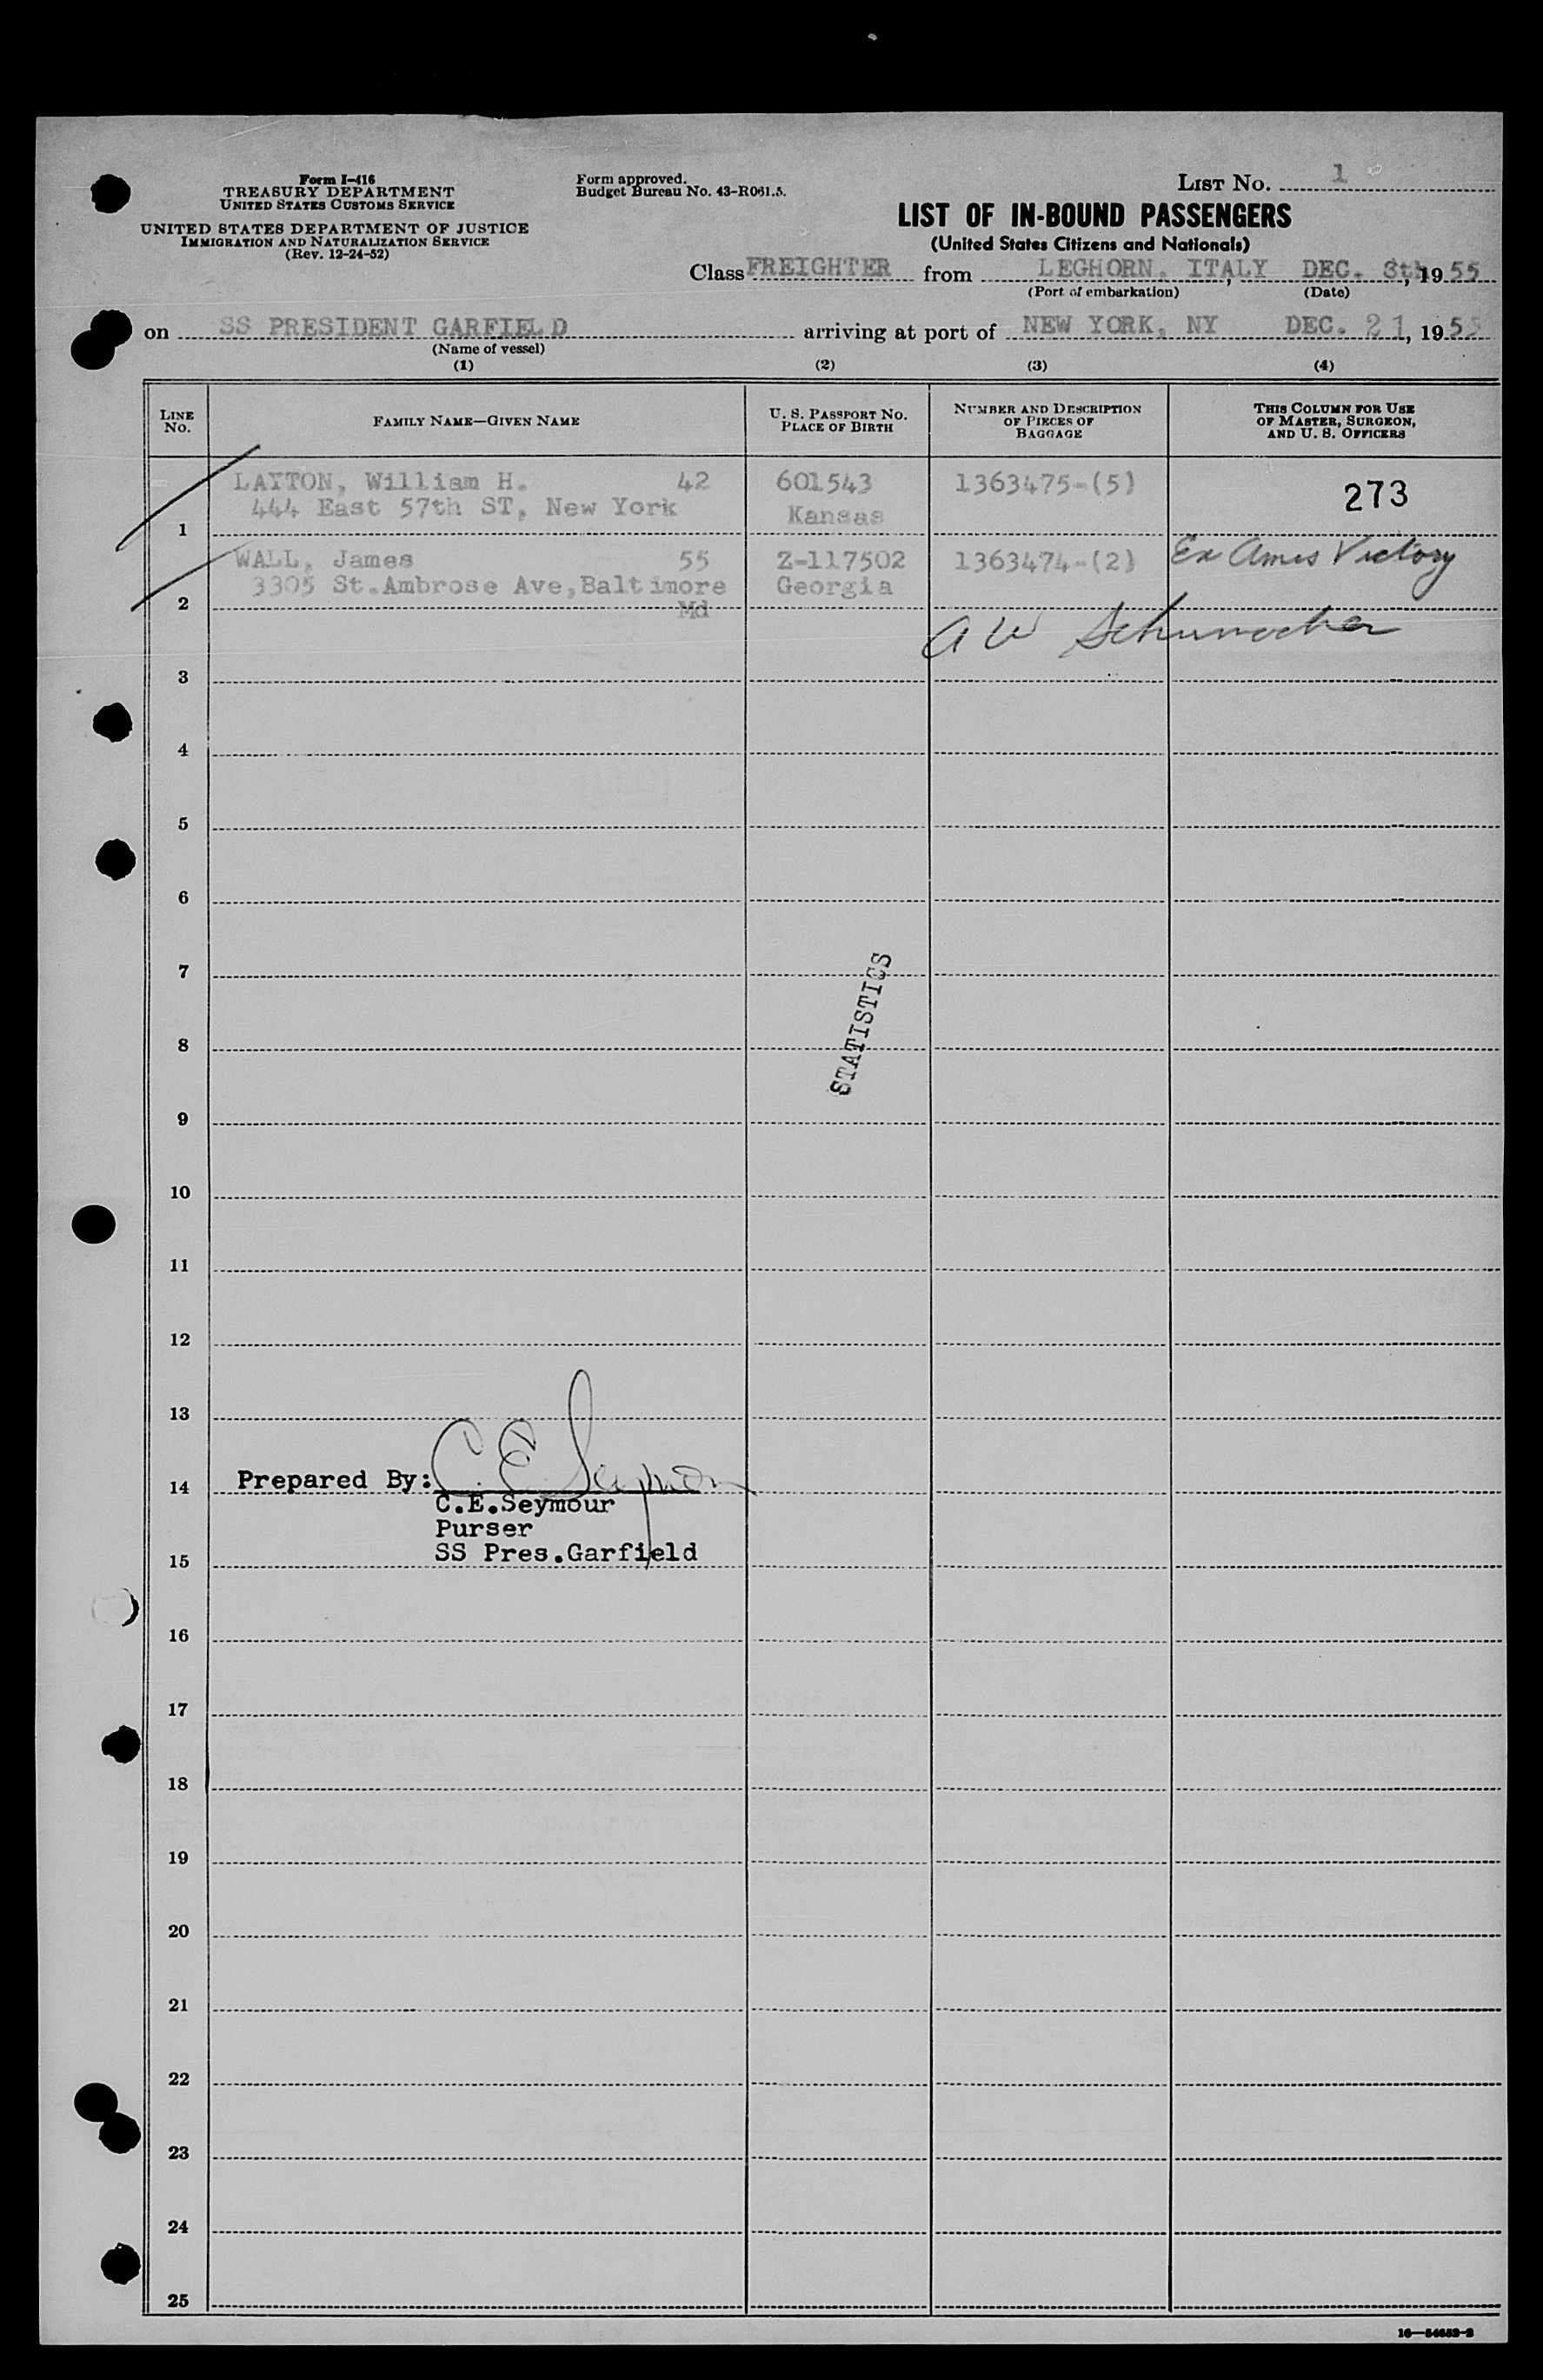 Form I-416
TREASURY DEPARTMENT
UNITED STATES CUSTOMS SERVICE
UNITED STATES DEPARTMENT OF JUSTICE
IMMIGRATION AND NATURALIZATION SERVICE
(Rev. 12-24-52)
Form approved.
Budget Bureau No. 43-R061.5.
LIST No. 1
LIST OF IN-BOUND PASSENGERS
(United States Citizens and Nationals)
Class FREIGHTER from LEGHORN, ITALY, DEC. 8th, 1955
(Port of embarkation) (Date)
on SS PRESIDENT GARFIELD arriving at port of NEW YORK, NY DEC. 21, 1955
(Name of vessel)
(1) (2) (3) (4)
LINE No. FAMILY NAME—GIVEN NAME U. S. PASSPORT NO. PLACE OF BIRTH NUMBER AND DESCRIPTION OF PIECES OF BAGGAGE THIS COLUMN FOR USE OF MASTER, SURGEON, AND U. S. OFFICERS
LAYTON, William H. 42 601543 1363475-(5) 273
444 East 57th ST, New York Kansas
1
WALL, James 55 Z-117502 1363474-(2) Ex Ames Victory
3305 St.Ambrose Ave,Baltimore Georgia
2 Md
A W Schumacher
3
4
5
6
7
STATISTICS
8
9
10
11
12
13
14 Prepared By: C. E. Seymour
C.E.Seymour
Purser
15 SS Pres.Garfield
16
17
18
19
20
21
22
23
24
25